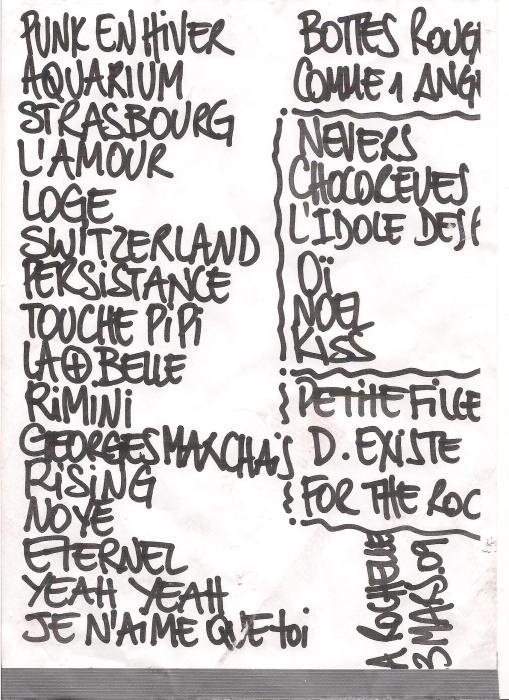 PUNK EN HIVER
AQUARIUM
STRASBOURG
L'AMOUR
LOGE
SWITZERLAND
PERSISTANCE
TOUCHE PIPI
LA + BELLE
RIMINI
GEORGES MARCHAIS
RISING
NOYÉ
ETERNEL
YEAH YEAH
JE N'AIME QUE toi
BOTTES ROUG
COMME 1 ANG
NEVERS
CHOCORÊVES
L'IDOLE DES
OÏ
NOEL
KISS
PETITE FILLE
D. EXISTE
FOR THE ROC
A ROCHELLE
3 MARS.09